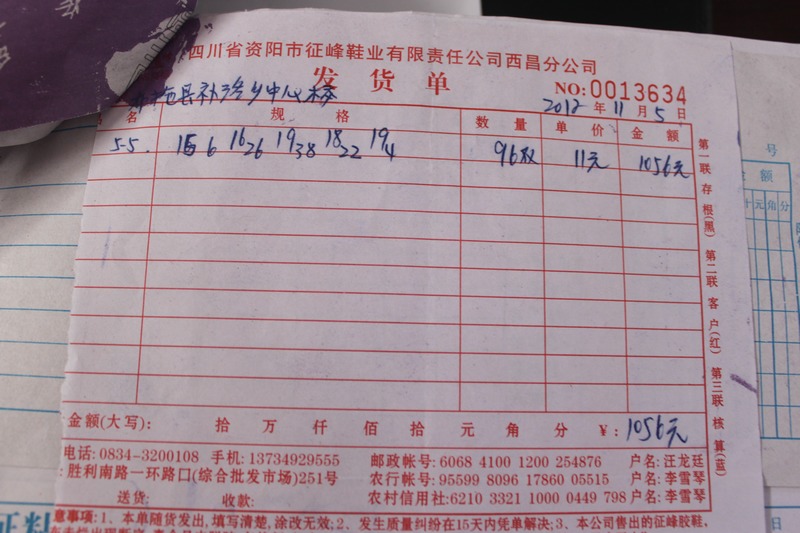 四川省资阳市征峰鞋业有限责任公司西昌分公司
发货单
NO:0013634
县补洛乡中心校
2012年11月5日
名 规格 数量 单价 金额
5-5. 16 6 16 26 19 38 18 22 19 4 96双 11元 1056元
第一联存根(黑) 第二联客户(红) 第三联核算(蓝)
金额(大写): 拾 万 仟 佰 拾 元 角 分 ¥: 1056元
电话: 0834-3200108 手机: 13734929555 邮政帐号: 6068 4100 1200 254876 户名: 汪龙廷
: 胜利南路一环路口(综合批发市场)251号 农行帐号: 95599 8096 17860 05515 户名: 李雪琴
送货: 收款: 农村信用社: 6210 3321 1000 0449 798 户名: 李雪琴
意事项: 1、本单随货发出,填写清楚,涂改无效; 2、发生质量纠纷在15天内凭单解决; 3、本公司售出的征峰胶鞋,
号
额
元角分